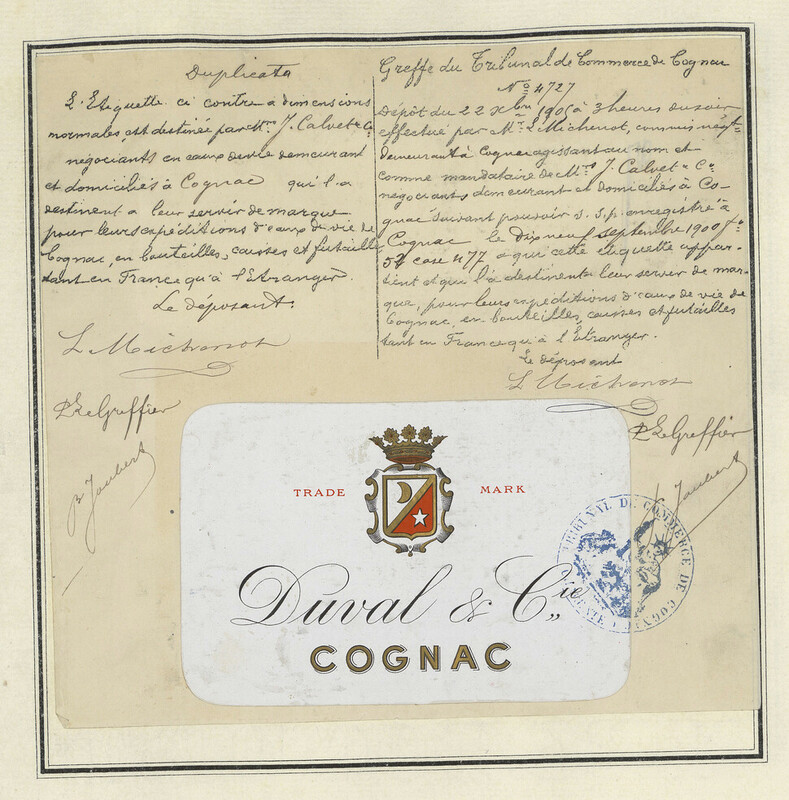 Duplicata
L'Etiquette ci contre a dimensions
normales, est destinée par Mrs. J. Calvet & Co
négociants en eaux de vie demeurant
et domiciliés à Cognac qui l'a
destinent a leur servir de marque
pour leurs expéditions d'eaux de vie de
Cognac, en bouteilles, caisses et futailles
tant en France qu'à l'Etranger.
Le déposant.
L Michenot
Pr Le Greffier
Joubert
Greffe du Tribunal de Commerce de Cognac
No 4727
Dépôt du 22 Xbre 1905 à 3 heures du soir
effectué par Mr. L. Michenot, commis négt
demeurant à Cognac agissant au nom et
comme mandataire de Mrs J. Calvet & Co
négociants demeurant et domiciliés à Co-
gnac suivant pouvoir s.s.p. enregistré à
Cognac le dix neuf Septembre 1900 fo
52 case 477 a qui cette étiquette appar-
tient et qui l'a destinent a leur server de mar-
que, pour leurs expéditions d'eaux de vie de
Cognac, en bouteilles, caisses et futailles
tant en France qu'à l'Etranger.
Le déposant
L Michenot
Pr Le Greffier
Joubert
TRADE MARK
Duval & Cie
COGNAC
TRIBUNAL DE COMMERCE DE COGNAC